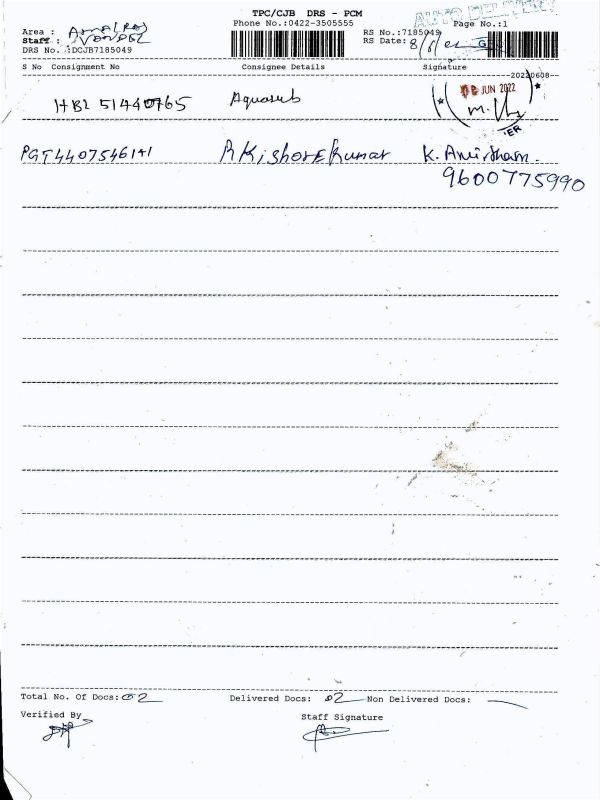 AUTO DELIVERY
TPC/CJB DRS - PCM
Phone No.:0422-3505555
Page No.:1
Area :
Staff :
RS No.:7185049
RS Date: 8/6/22
DRS No. :DCJB7185049
S No Consignment No Consignee Details Signature
20220608
HBL 51440765 Aquasub
08 JUN 2022
PGT4407546141 R Kishore Kumar K. Amirtham.
9600775990
Total No. Of Docs: 02 Delivered Docs: 02 Non Delivered Docs: —
Verified By
Staff Signature